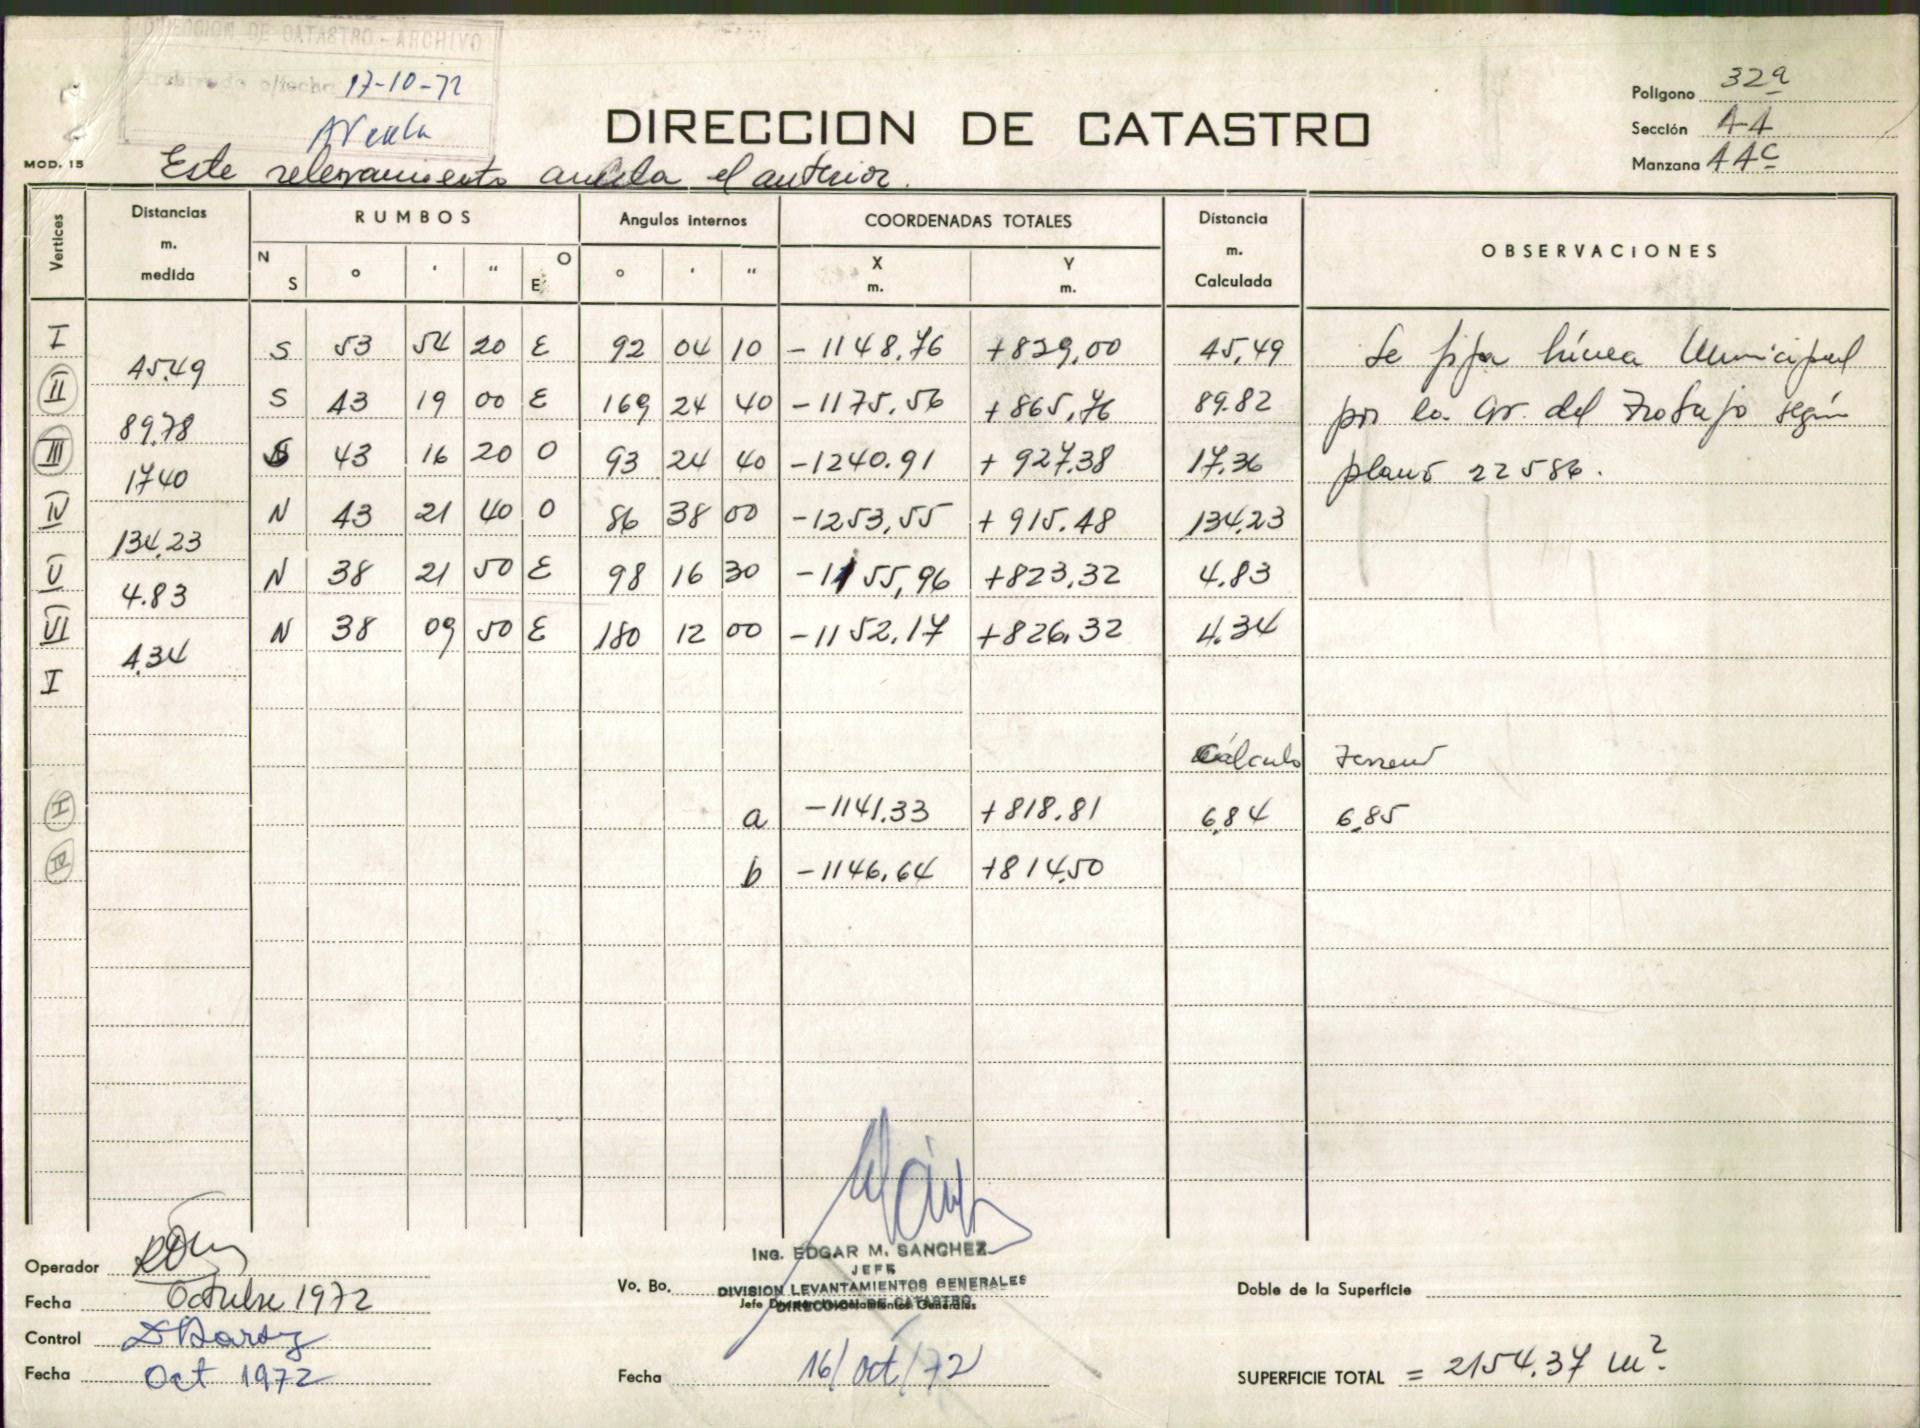 DIRECCION DE CATASTRO - ARCHIVO
17-10-72
MOD. 15
Este relevamiento anula el anterior.
DIRECCION DE CATASTRO
Polígono 32ª
Sección A-A
Manzana AAc
Vertices
Distancias m. medida
RUMBOS
N S ° ' " O E
Angulos internos
° ' "
COORDENADAS TOTALES
X m.
Y m.
Distancia m. Calculada
OBSERVACIONES
I S 53 54 20 E 92 04 10 -1148,76 +829,00 45,49
45.49
II S 43 19 00 E 169 24 40 -1175,56 +865,76 89.82
89.78
III S 43 16 20 O 93 24 40 -1240.91 +927.38 17.36
17.40
IV N 43 21 40 O 86 38 00 -1253,55 +915.48 134,23
134.23
V N 38 21 50 E 98 16 30 -1155,96 +823,32 4.83
4.83
VI N 38 09 50 E 180 12 00 -1152.17 +826,32 4.34
4.34
I
Se fija Línea Municipal
por la Av. del Trabajo según
plano 22586.
Cálculo Terreno
I a -1141.33 +818.81 6,84 6,85
IV b -1146.64 +814.50
Operador
Fecha Octubre 1972
Control
Fecha Oct 1972
ING. EDGAR M. SANCHEZ
JEFE
Vo. Bo. DIVISION LEVANTAMIENTOS GENERALES
DIRECCION DE CATASTRO
Fecha 16/oct./72
Doble de la Superficie
SUPERFICIE TOTAL = 2154.37 m².